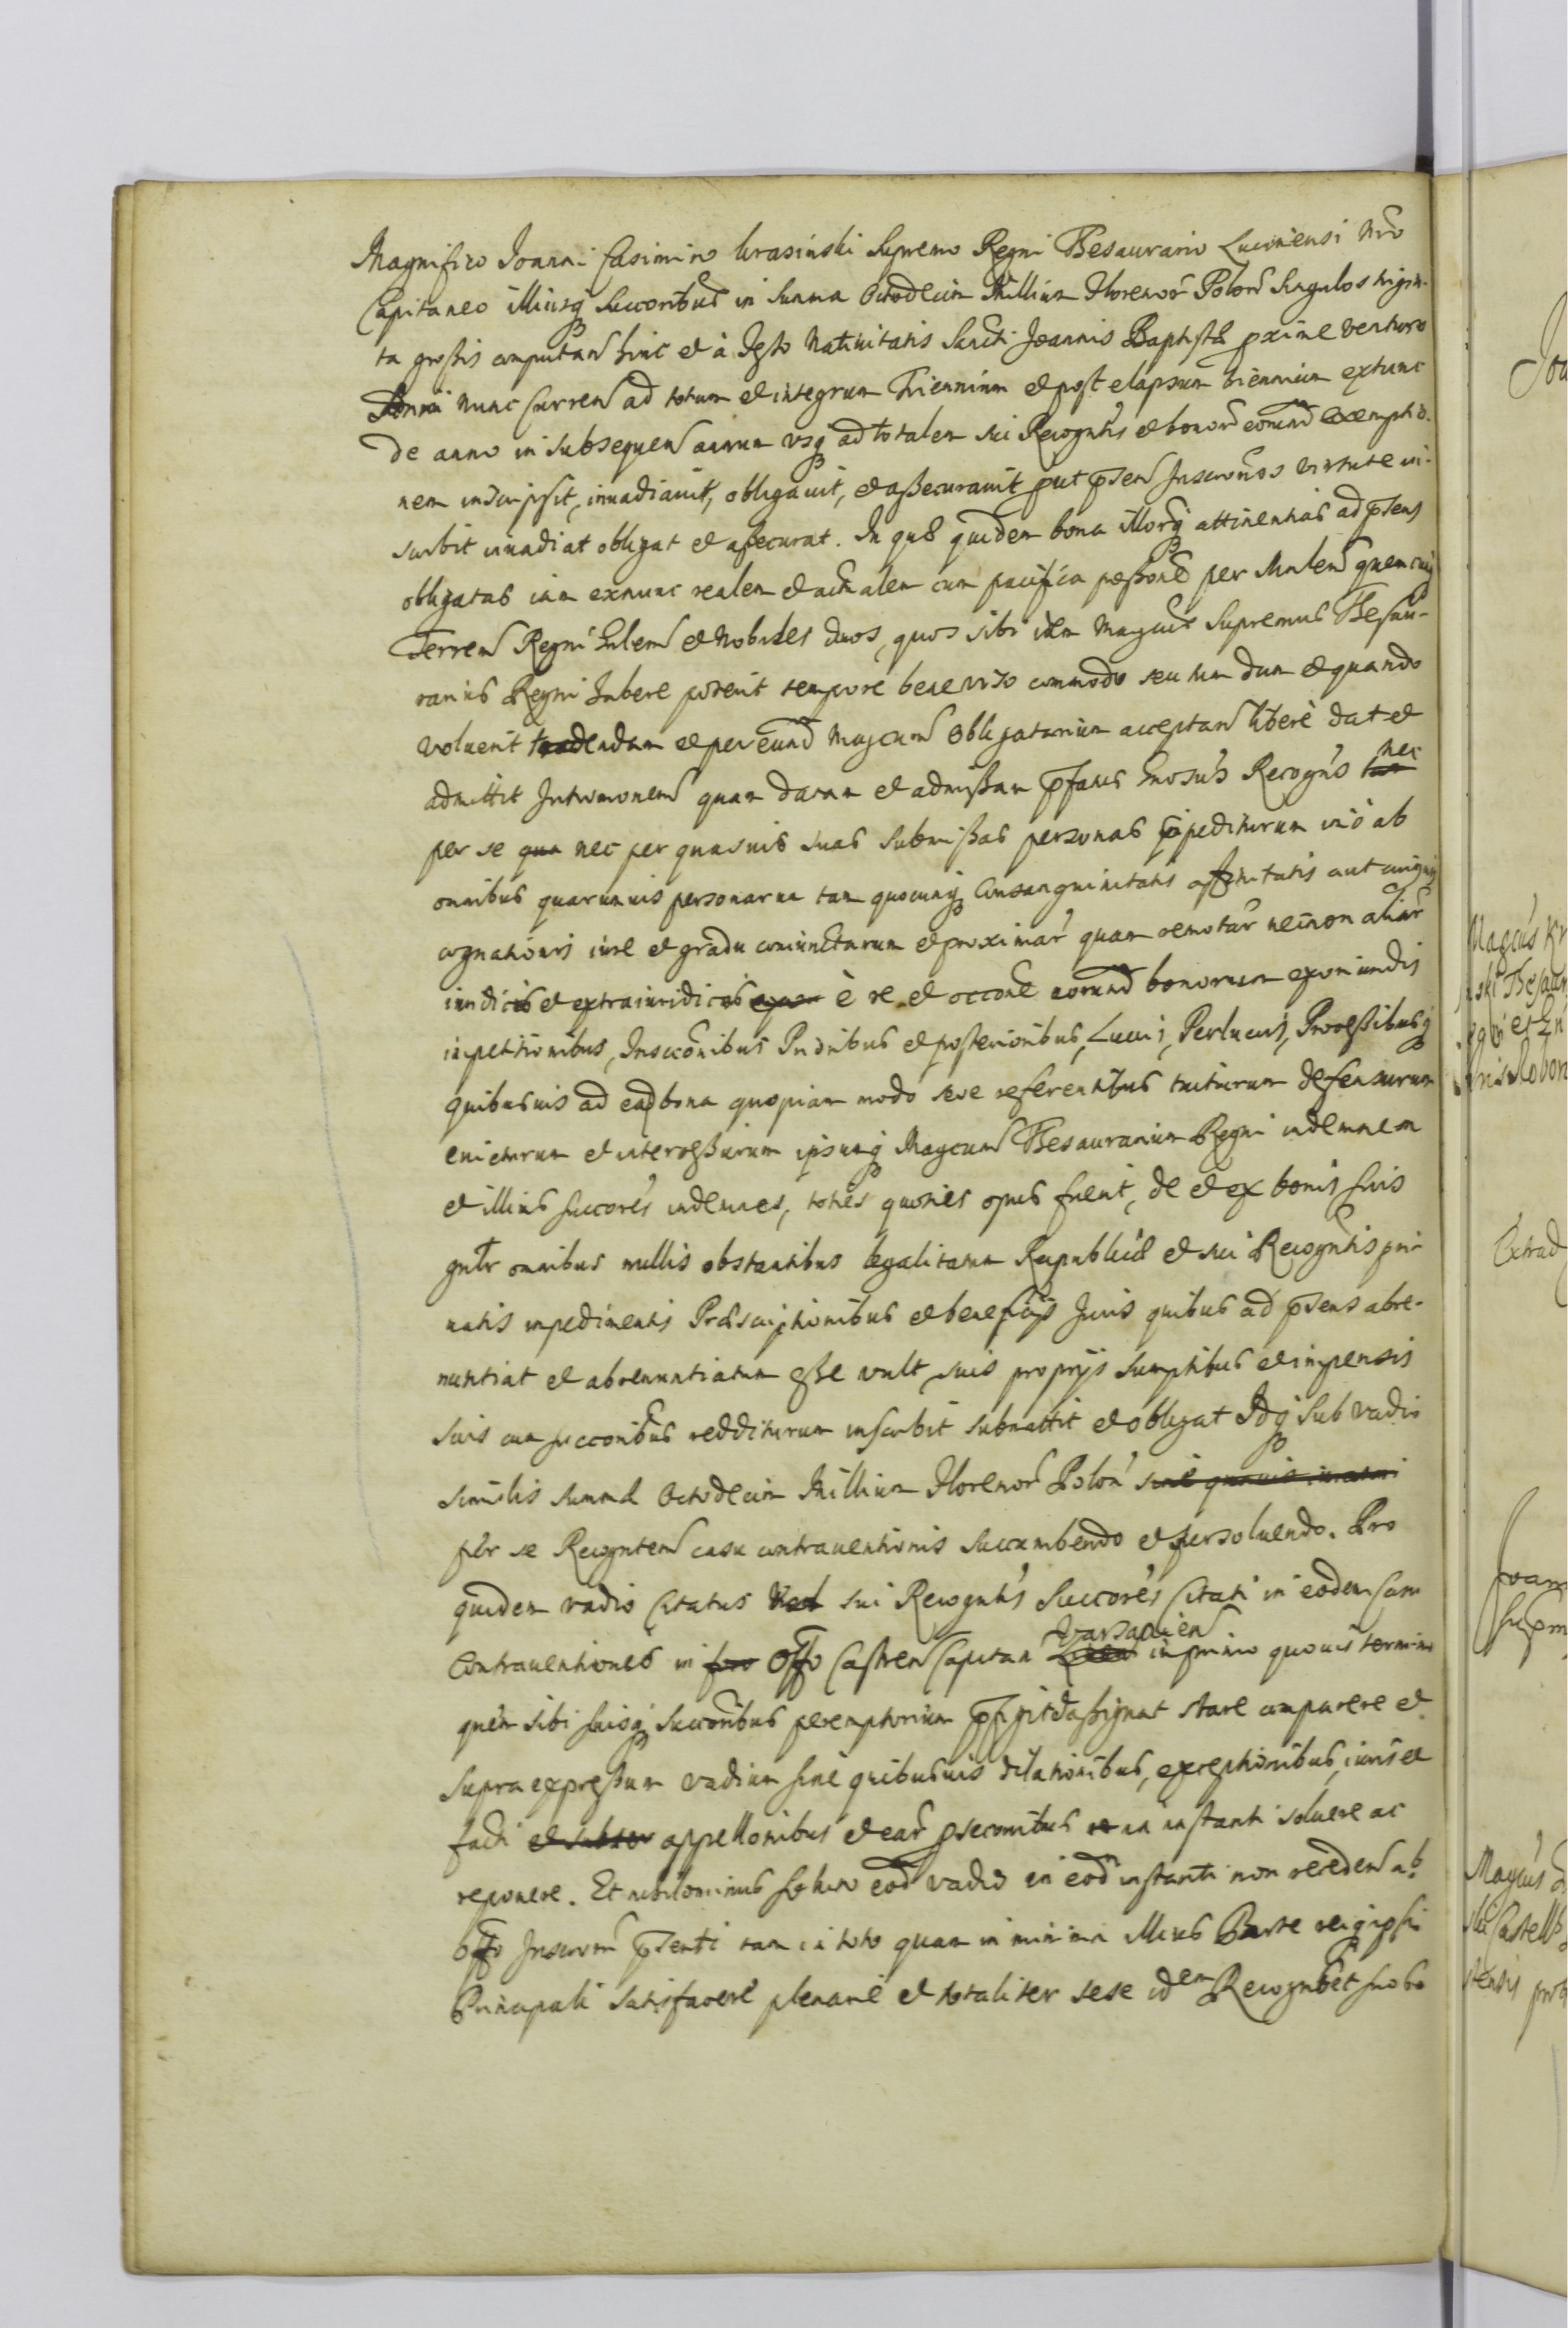 Magnifico Joanni Casimiro Krasinski Supremo Regni Thesaurario Luconiensi Nro
Capitaneo illiusq Succoribus in Summa Octodecim Millium Florenor Polon Singulos trigin-
ta grossis computan hinc et à Festo Nativitatis Sancti Joannis Baptistæ pxime venturo
Anni nunc curren ad totum et integrum Triennium et post elapsum triennium extunc
de anno in subsequen annum vsq ad totalem sui Recogntis et bonor eorund exemptio-
nem inscripsit, inuadiauit, obligauit, et assecurauit put psen Inscronis virtute in-
scribit inuadiat obligat et assecurat. In quæ quidem bona illorq attinentias ad psens
obligatas iam exnunc realem et actualem cum pacifica possone per Mnlem quemcuq
Terren Regni Gnlem et Nobiles duos, quos sibi idem Magcus Supremus Thesau-
rarius Regni habere poterit tempore bene viso commodo seu tum dum et quando
voluerit tradendam et per eund Magcum Obligatarium acceptan liberè dat et
admittit Intromonem quam datam et admissam pfatus Gnosus Recogns nec
per se nec per quasuis suas submissas personas impediturum imò ab
omnibus quarumuis personarum tam quocunq Consanguinitatis affinitatis aut cuiusuis
cognationis iure et gradu coniunctarum et proximar quam remotar necnon aliar
iuridicis et extraiuridicis è re et occone eorund bonorum exoriundis
impetitionibus, Inscronibus Prioribus et posterioribus, Lucris, Perlucris, Processibusq
quibusuis ad ead bona quopiam modo sese referentibus tuiturum defensurum
euicturum et intercessurum ipsumq Magcum Thesaurarium Regni indemnem
et illius succores indemnes, toties quoties opus fuerit, de et ex bonis suis
gnlr omnibus nullis obstantibus legalitatum Reipublicæ et sui Recogntis pri-
uatis impedimentis Præscriptionibus et beneficijs Juris quibus ad psens abre-
nuntiat et abrenuntiatum esse vult suis proprijs sumptibus et impensis
suis cum succoribus redditurum inscribit submittit et obligat Idq sub vadio
similis summæ Octodecim Millium Florenor Polon sine quauis
per se Recognten casu contrauentionis succumbendo et persoluendo. Pro
quidem vadio Citatus Vel sui Recogntis Succores Citati in eodem Casu
Contrauentionis in foro Offo Castren Capitan Varsauien in primo quouis termino
quem sibi suisq succoribus peremptorium pfigit et assignat stare comparere et
supra expressum vadium sine quibusuis dilationibus, exceptionibus, iuris et
facti appellonibus et ear psecontibus in instanti soluere ac
reponere. Et nihilominus soluto eod vadio in eod instanti non receden ab
Offo Inscroni psenti tam in toto quam in minima illius Parte reiq ipsi
Principali satisfacere plenariè et totaliter sese idem Recogn